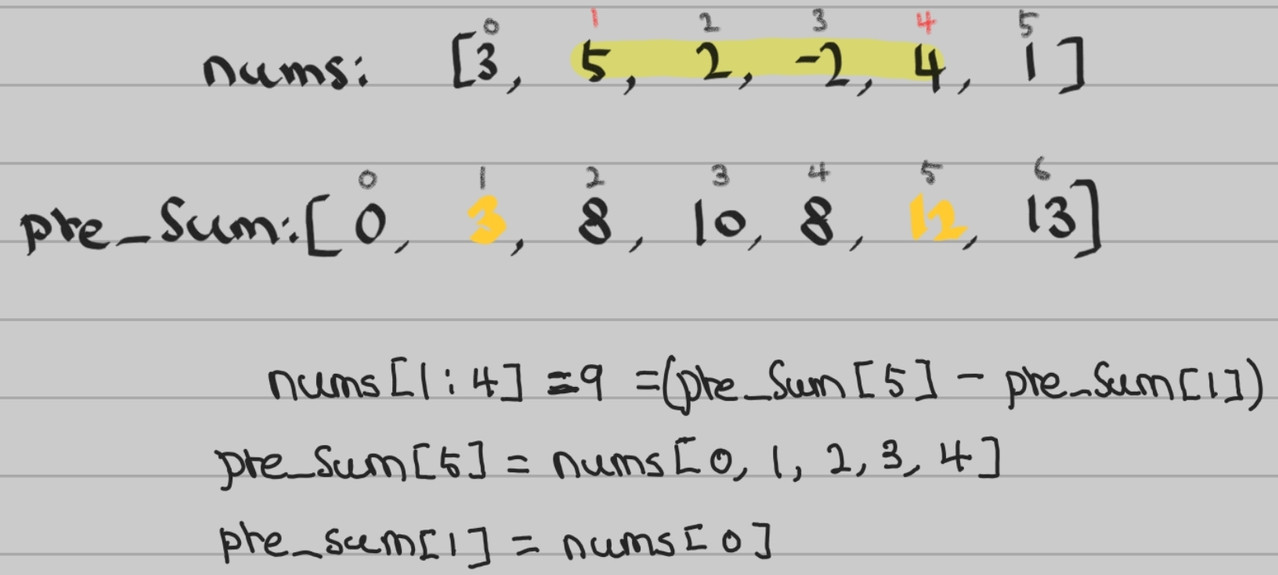 0 1 2 3 4 5
nums: [3, 5, 2, -2, 4, 1]
0 1 2 3 4 5 6
pre_Sum:[0, 3, 8, 10, 8, 12, 13]
nums[1:4] =9 =(pre_Sum[5] - pre_Sum[1])
pre_Sum[5] = nums[0, 1, 2, 3, 4]
pre_sum[1] = nums[0]